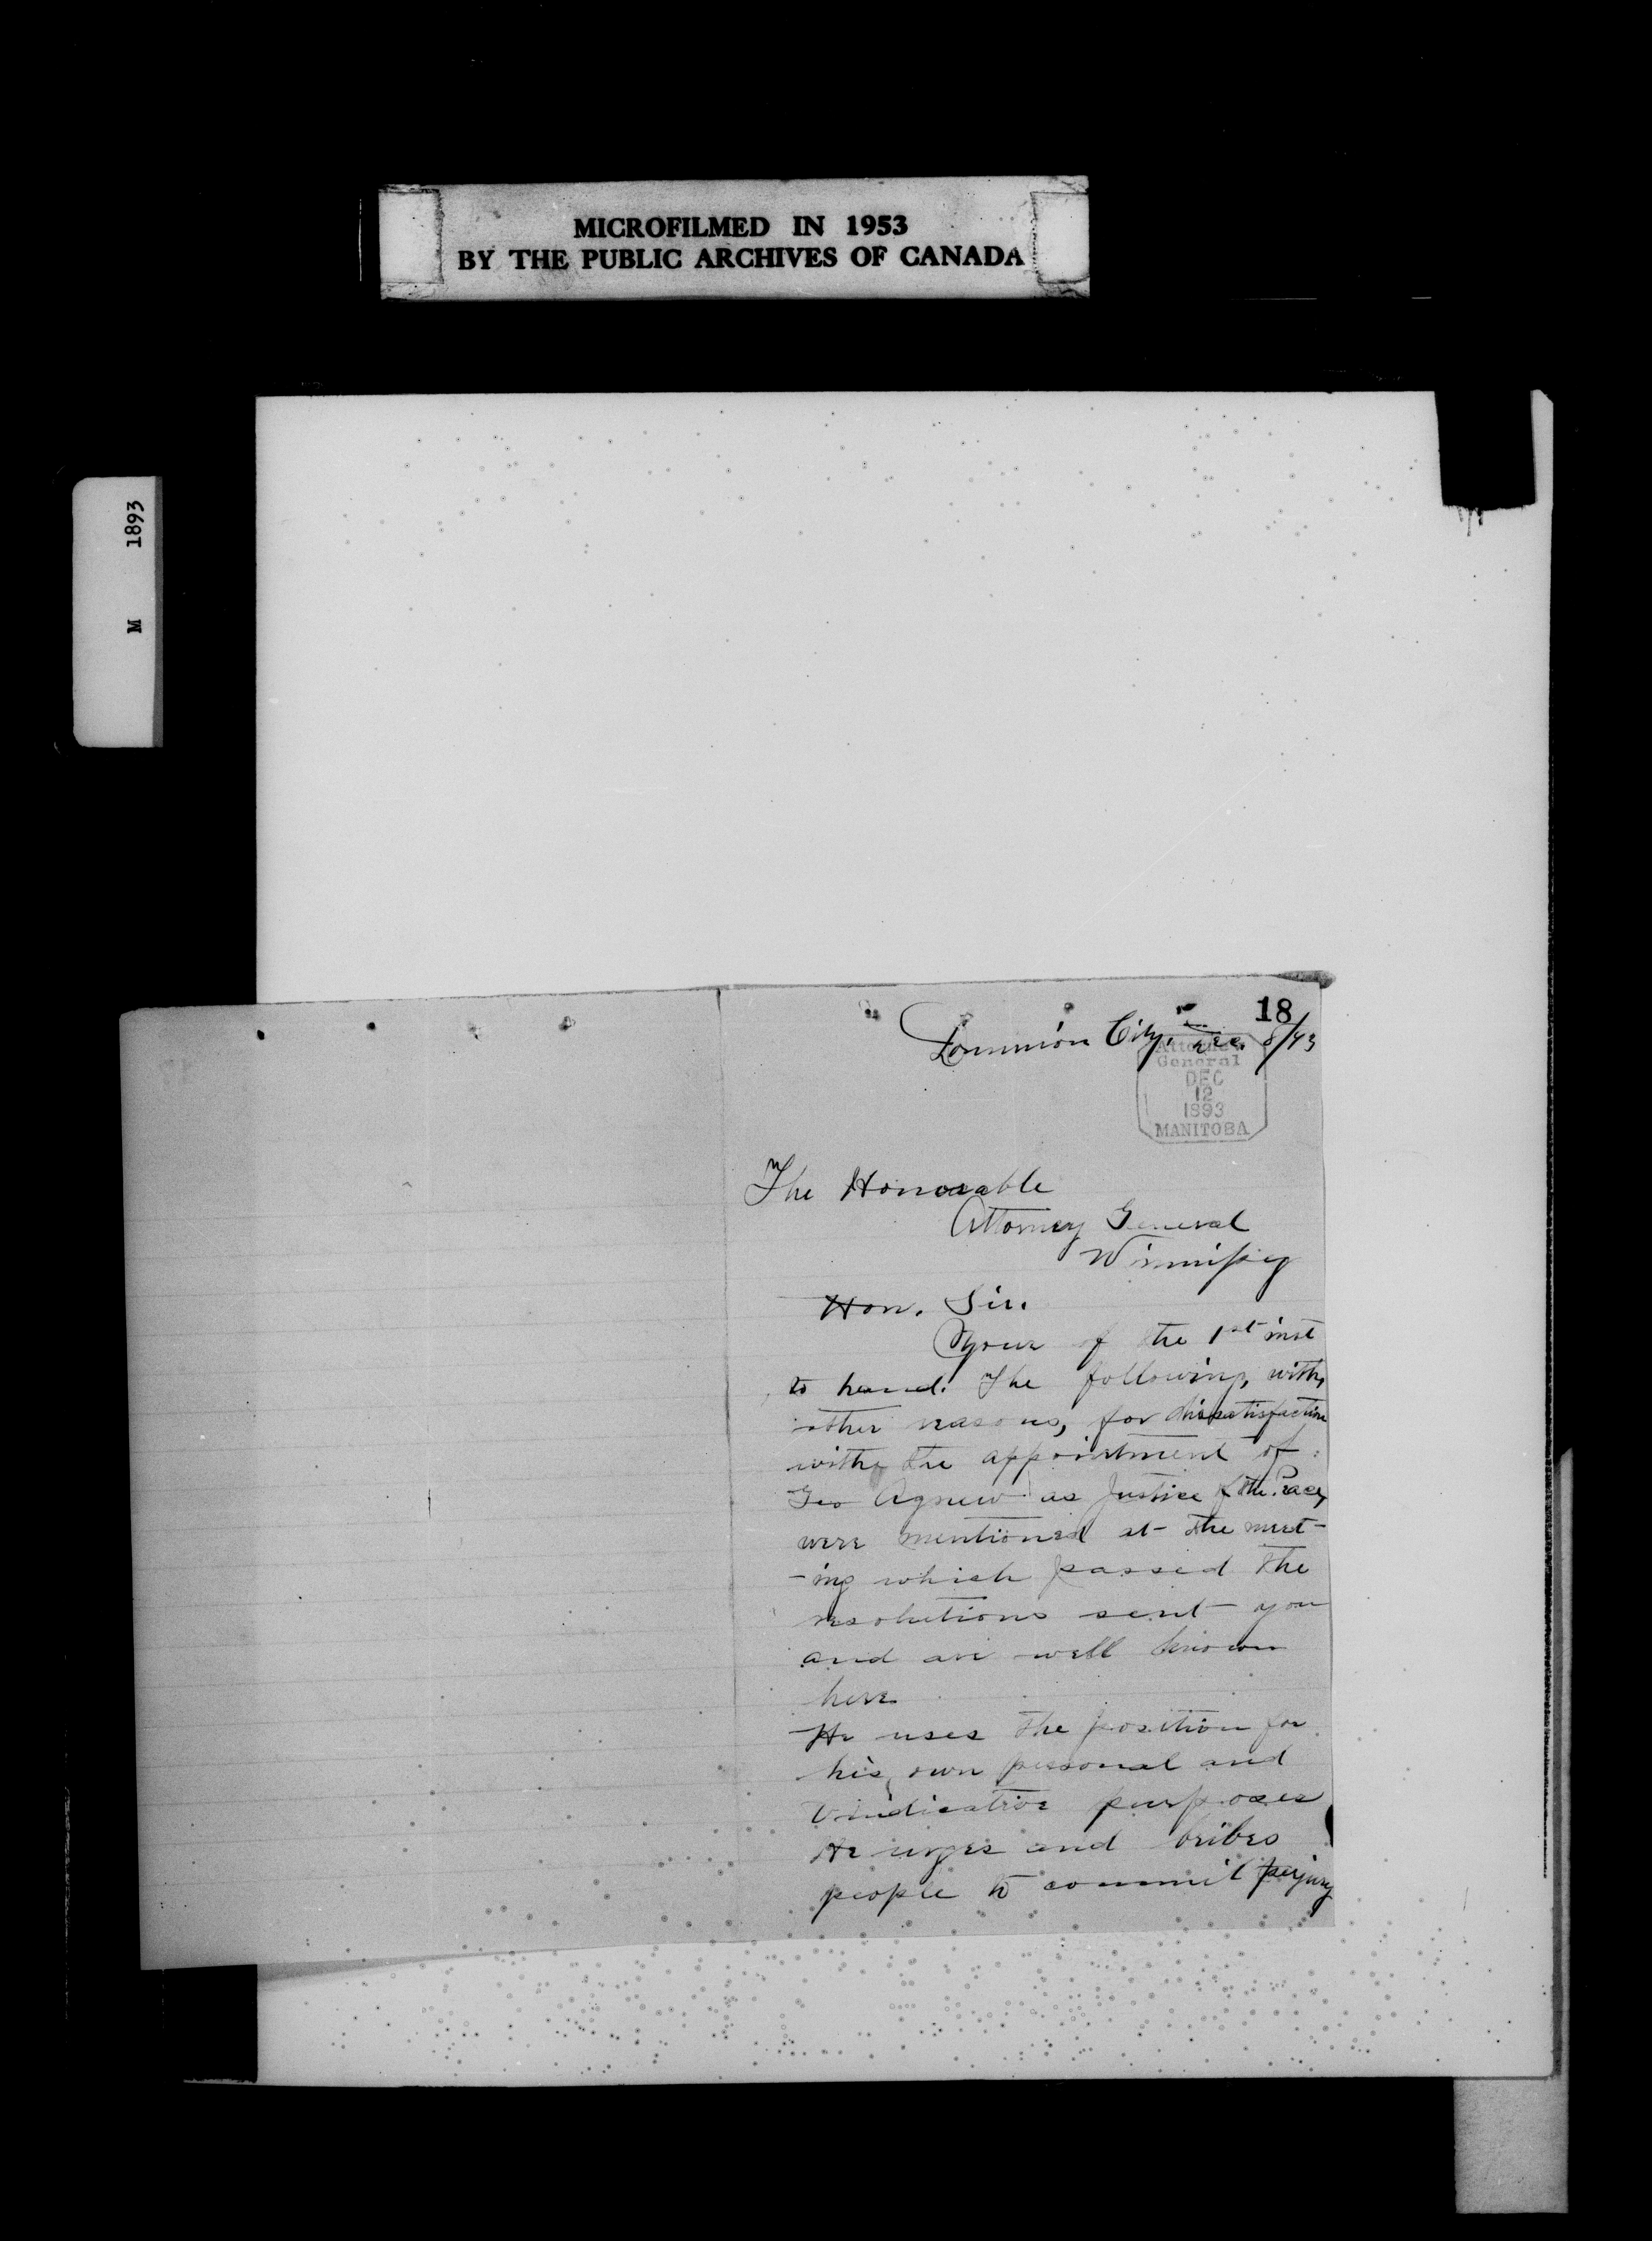 MICROFILMED IN 1953
BY THE PUBLIC ARCHIVES OF CANADA
M 1893
18
Dominion City, Dec. 8/93
Attorney
General
DEC
12
1893
MANITOBA
The Honorable
Attorney General
Winnipeg
Hon. Sir.
Your of the 1st inst
to hand. The following, with,
other reasons, for dissatisfaction
with the appointment of
Geo Agnew as Justice of the Peace,
were mentioned at the meet-
-ing which passed the
resolutions sent you
and are well known
here
He uses the position for
his own personal and
vindicative purposes
He urges and bribes
people to commit perjury